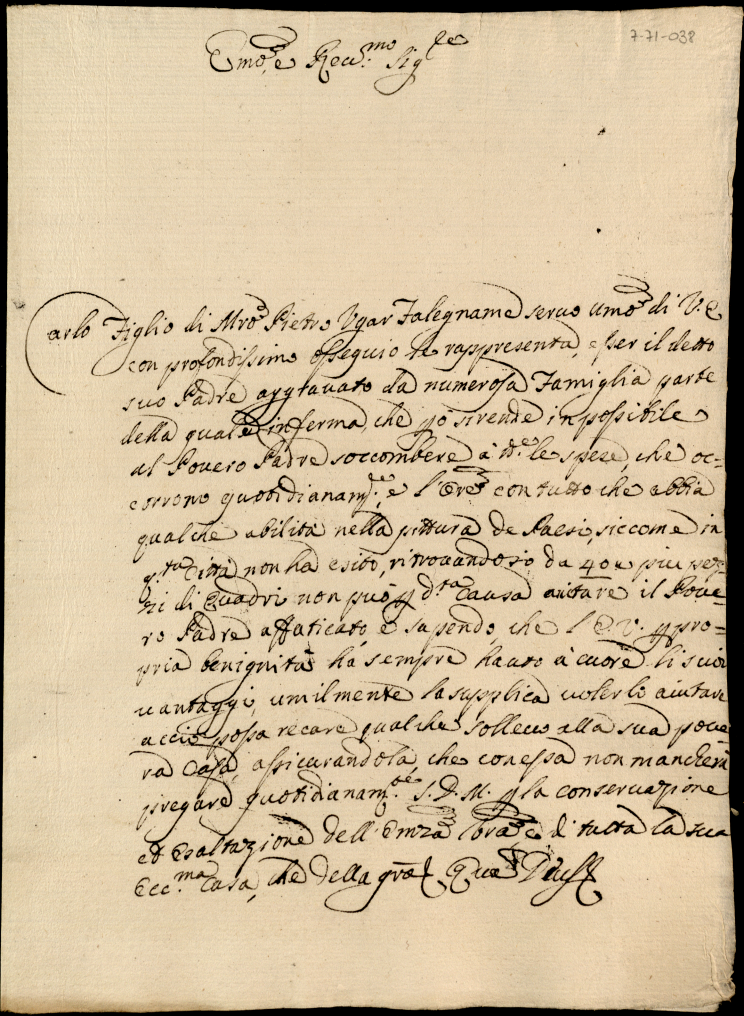 7-71-038
Emo, e Reu:mo Sigre
Carlo Figlio di Mro Pietro Vgar Falegname seruo umo di V. E
con profondissimo ossequio le rappresenta, e per il detto
suo Padre aggrauato da numerosa Famiglia parte
della quale inferma che ... si rende inpossibile
al Pouero Padre soccombere à tte le spese, che oc=
corrono quotidianamte, e l'Ore con tutto che abbia
qualche abilità nella pittura de Paesi, siccome in
qta Città non ha esito, ritrouandosi da 40 e piu pez=
zi di Quadri non può p dta Causa aiutare il Poue=
ro Padre affaticato, e sapendo, che l'E. V. p pro=
pria benignità há sempre hauto à cuore li suoi
uantaggi, umilmente la supplica uolerlo aiutare
acciò possa recare qualche sollieuo alla sua poue
ra Casa, assicurandola, che con essa non mancherà
pregare quotidianamte S. D. M. p la conseruazione
ed esaltazione dell'Emza Vra e di tutta la sua
Ecc.ma Casa, che della gra Quam Deus